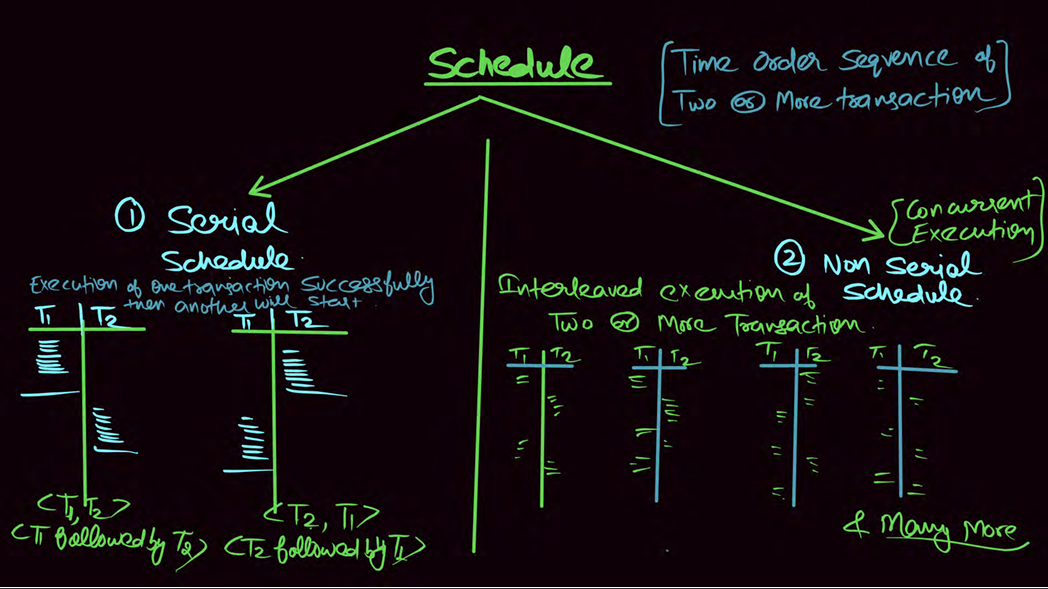 Schedule
[Time order sequence of
Two or More transaction]
① Serial
Schedule.
Execution of one transaction Successfully
then another will start
T1 T2
T1 T2
<T1, T2>
<T1 followed by T2>
<T2, T1>
<T2 followed by T1>
{Concurrent
Execution}
② Non Serial
Schedule.
Interleaved execution of
Two or More Transaction.
T1 T2
T1 T2
T1 T2
T1 T2
& Many More